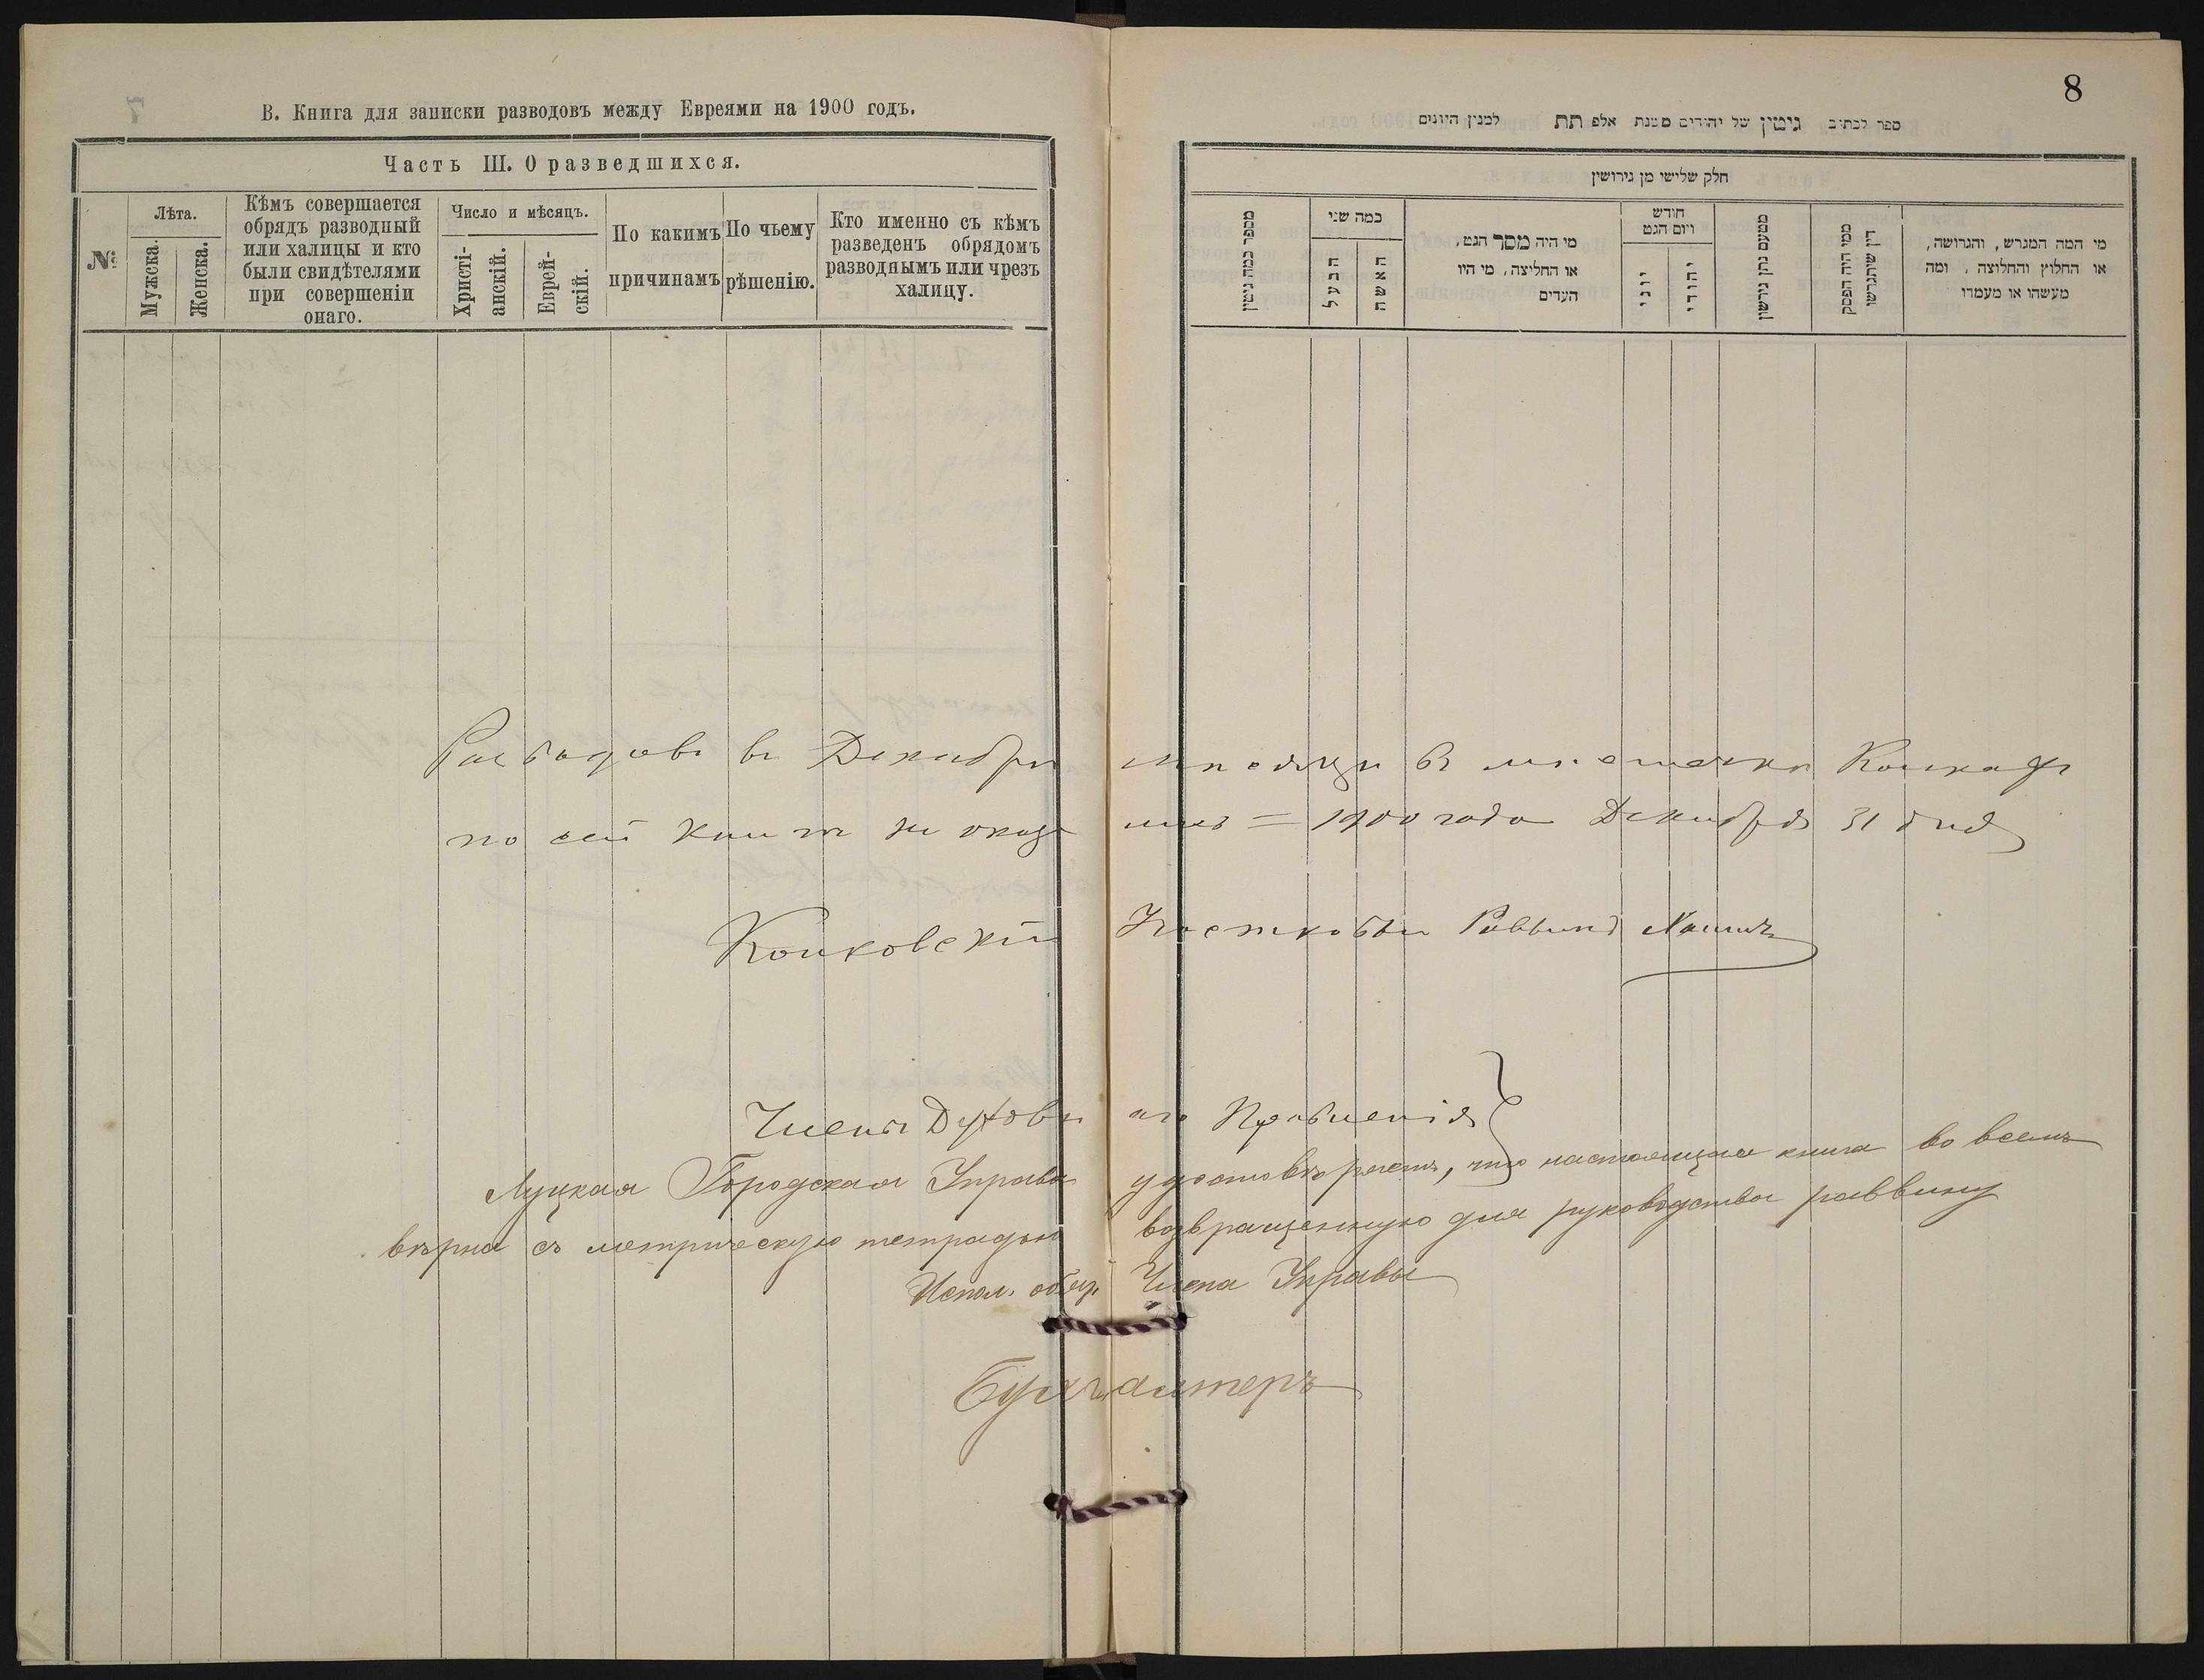 8
В. Книга для записки разводовъ между Евреями на 1900 годъ.
Часть III. О разведшихся.
№
Лѣта.
Мужска.
Женска.
Кѣмъ совершается
обрядъ разводный
или халицы и кто
были свидѣтелями
при совершеніи
онаго.
Число и мѣсяцъ.
Христі-
анскій.
Еврей-
скій.
По какимъ
причинамъ
По чьему
рѣшенію.
Кто именно съ кѣмъ
разведенъ обрядомъ
разводнымъ или чрезъ
халицу.
ספר לכתוב גיטין של יהודים משנת אלפ תת למנין היונים
חלק שלישי מן גירושין
מספר כמה גיטין
כמה שני
הבעל
האשה
מי היה מסר הגט,
או החליצה, מי היו
העדים
חודש
ויום הגט
יוני
יהודי
מטעם נתן גירושין
ממי היה הפסק
דין שיתגרשו
מי המה המגרש, והגרושה,
או החלוץ והחלוצה, ומה
מעשהו או מעמדו
Разводовъ въ Декабрѣ мѣсяцѣ въ мѣстечкѣ Колкахъ
по сей книгѣ не оказалось = 1900 года Декабря 31 дня
Колковскій Участковый Раввинъ
Члены Духовнаго Правленія }
Луцкая Городская Управа удостовѣряетъ, что настоящая книга во всемъ
вѣрна съ метрическую тетрадью возвращенную для руководства раввину
Испол. обяз. Члена Управы
Бухгалтеръ